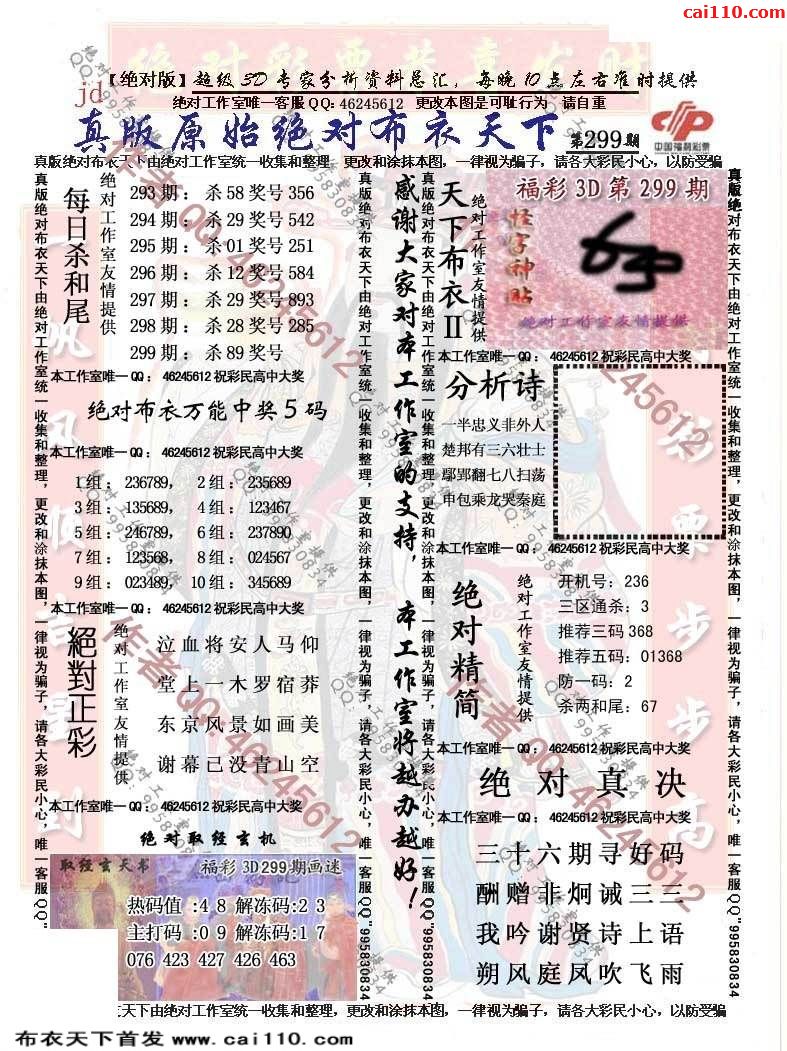 cai110.com
绝对彩票共享发财
【绝对版】超级3D专家分析资料总汇，每晚10点左右准时提供
jd
绝对工作室唯一客服QQ：46245612 更改本图是可耻行为 请自重
真版原始绝对布衣天下 第299期
中国福利彩票
真版绝对布衣天下由绝对工作室统一收集和整理，更改和涂抹本图，一律视为骗子，请各大彩民小心，以防受骗
真版绝对布衣天下由绝对工作室统一收集和整理，更改和涂抹本图，一律视为骗子，请各大彩民小心，唯一客服QQ"
每日杀和尾
绝对工作室友情提供
293期：杀58奖号356
294期：杀29奖号542
295期：杀01奖号251
296期：杀12奖号584
297期：杀29奖号893
298期：杀28奖号285
299期：杀89奖号
本工作室唯一QQ：46245612祝彩民高中大奖
绝对布衣万能中奖5码
本工作室唯一QQ：46245612祝彩民高中大奖
1组：236789， 2组：235689
3组：135689， 4组：123467
5组：246789， 6组：237890
7组：123568， 8组：024567
9组：023489， 10组：345689
本工作室唯一QQ：46245612祝彩民高中大奖
絕對正彩
绝对工作室友情提供
泣血将安人马仰
堂上一木罗宿莽
东京风景如画美
谢幕已没青山空
本工作室唯一QQ：46245612祝彩民高中大奖
绝对取经玄机
取经玄天书 福彩3D299期画迷
热码值:48解冻码:23
主打码:09解冻码:17
076 423 427 426 463
真版绝对布衣天下由绝对工作室统一收集和整理，更改和涂抹本图，一律视为骗子，请各大彩民小心，唯一客服QQ"995830834
感谢大家对本工作室的支持，本工作室将越办越好！
真版绝对布衣天下由绝对工作室统一收集和整理，更改和涂抹本图，一律视为骗子，请各大彩民小心，唯一客服QQ"995830834
天下布衣II
绝对工作室友情提供
福彩3D第299期
怪字神贴
绝对工作室友情提供
本工作室唯一QQ：46245612祝彩民高中大奖
分析诗
一半忠义非外人
楚邦有三六壮士
鄢郢翻七八扫荡
申包乘龙哭秦庭
本工作室唯一QQ：46245612祝彩民高中大奖
绝对精简
绝对工作室友情提供
开机号：236
三区通杀：3
推荐三码368
推荐五码：01368
防一码：2
杀两和尾：67
本工作室唯一QQ：46245612祝彩民高中大奖
绝对真决
本工作室唯一QQ：46245612祝彩民高中大奖
三十六期寻好码
酬赠非炯诫三三
我吟谢贤诗上语
朔风庭凤吹飞雨
真版绝对布衣天下由绝对工作室统一收集和整理，更改和涂抹本图，一律视为骗子，请各大彩民小心，唯一客服QQ"995830834
天下由绝对工作室统一收集和整理，更改和涂抹本图，一律视为骗子，请各大彩民小心，以防受骗
作者QQ:46245612
绝对工作室提供
QQ:995830834
布衣天下首发 www.cai110.com